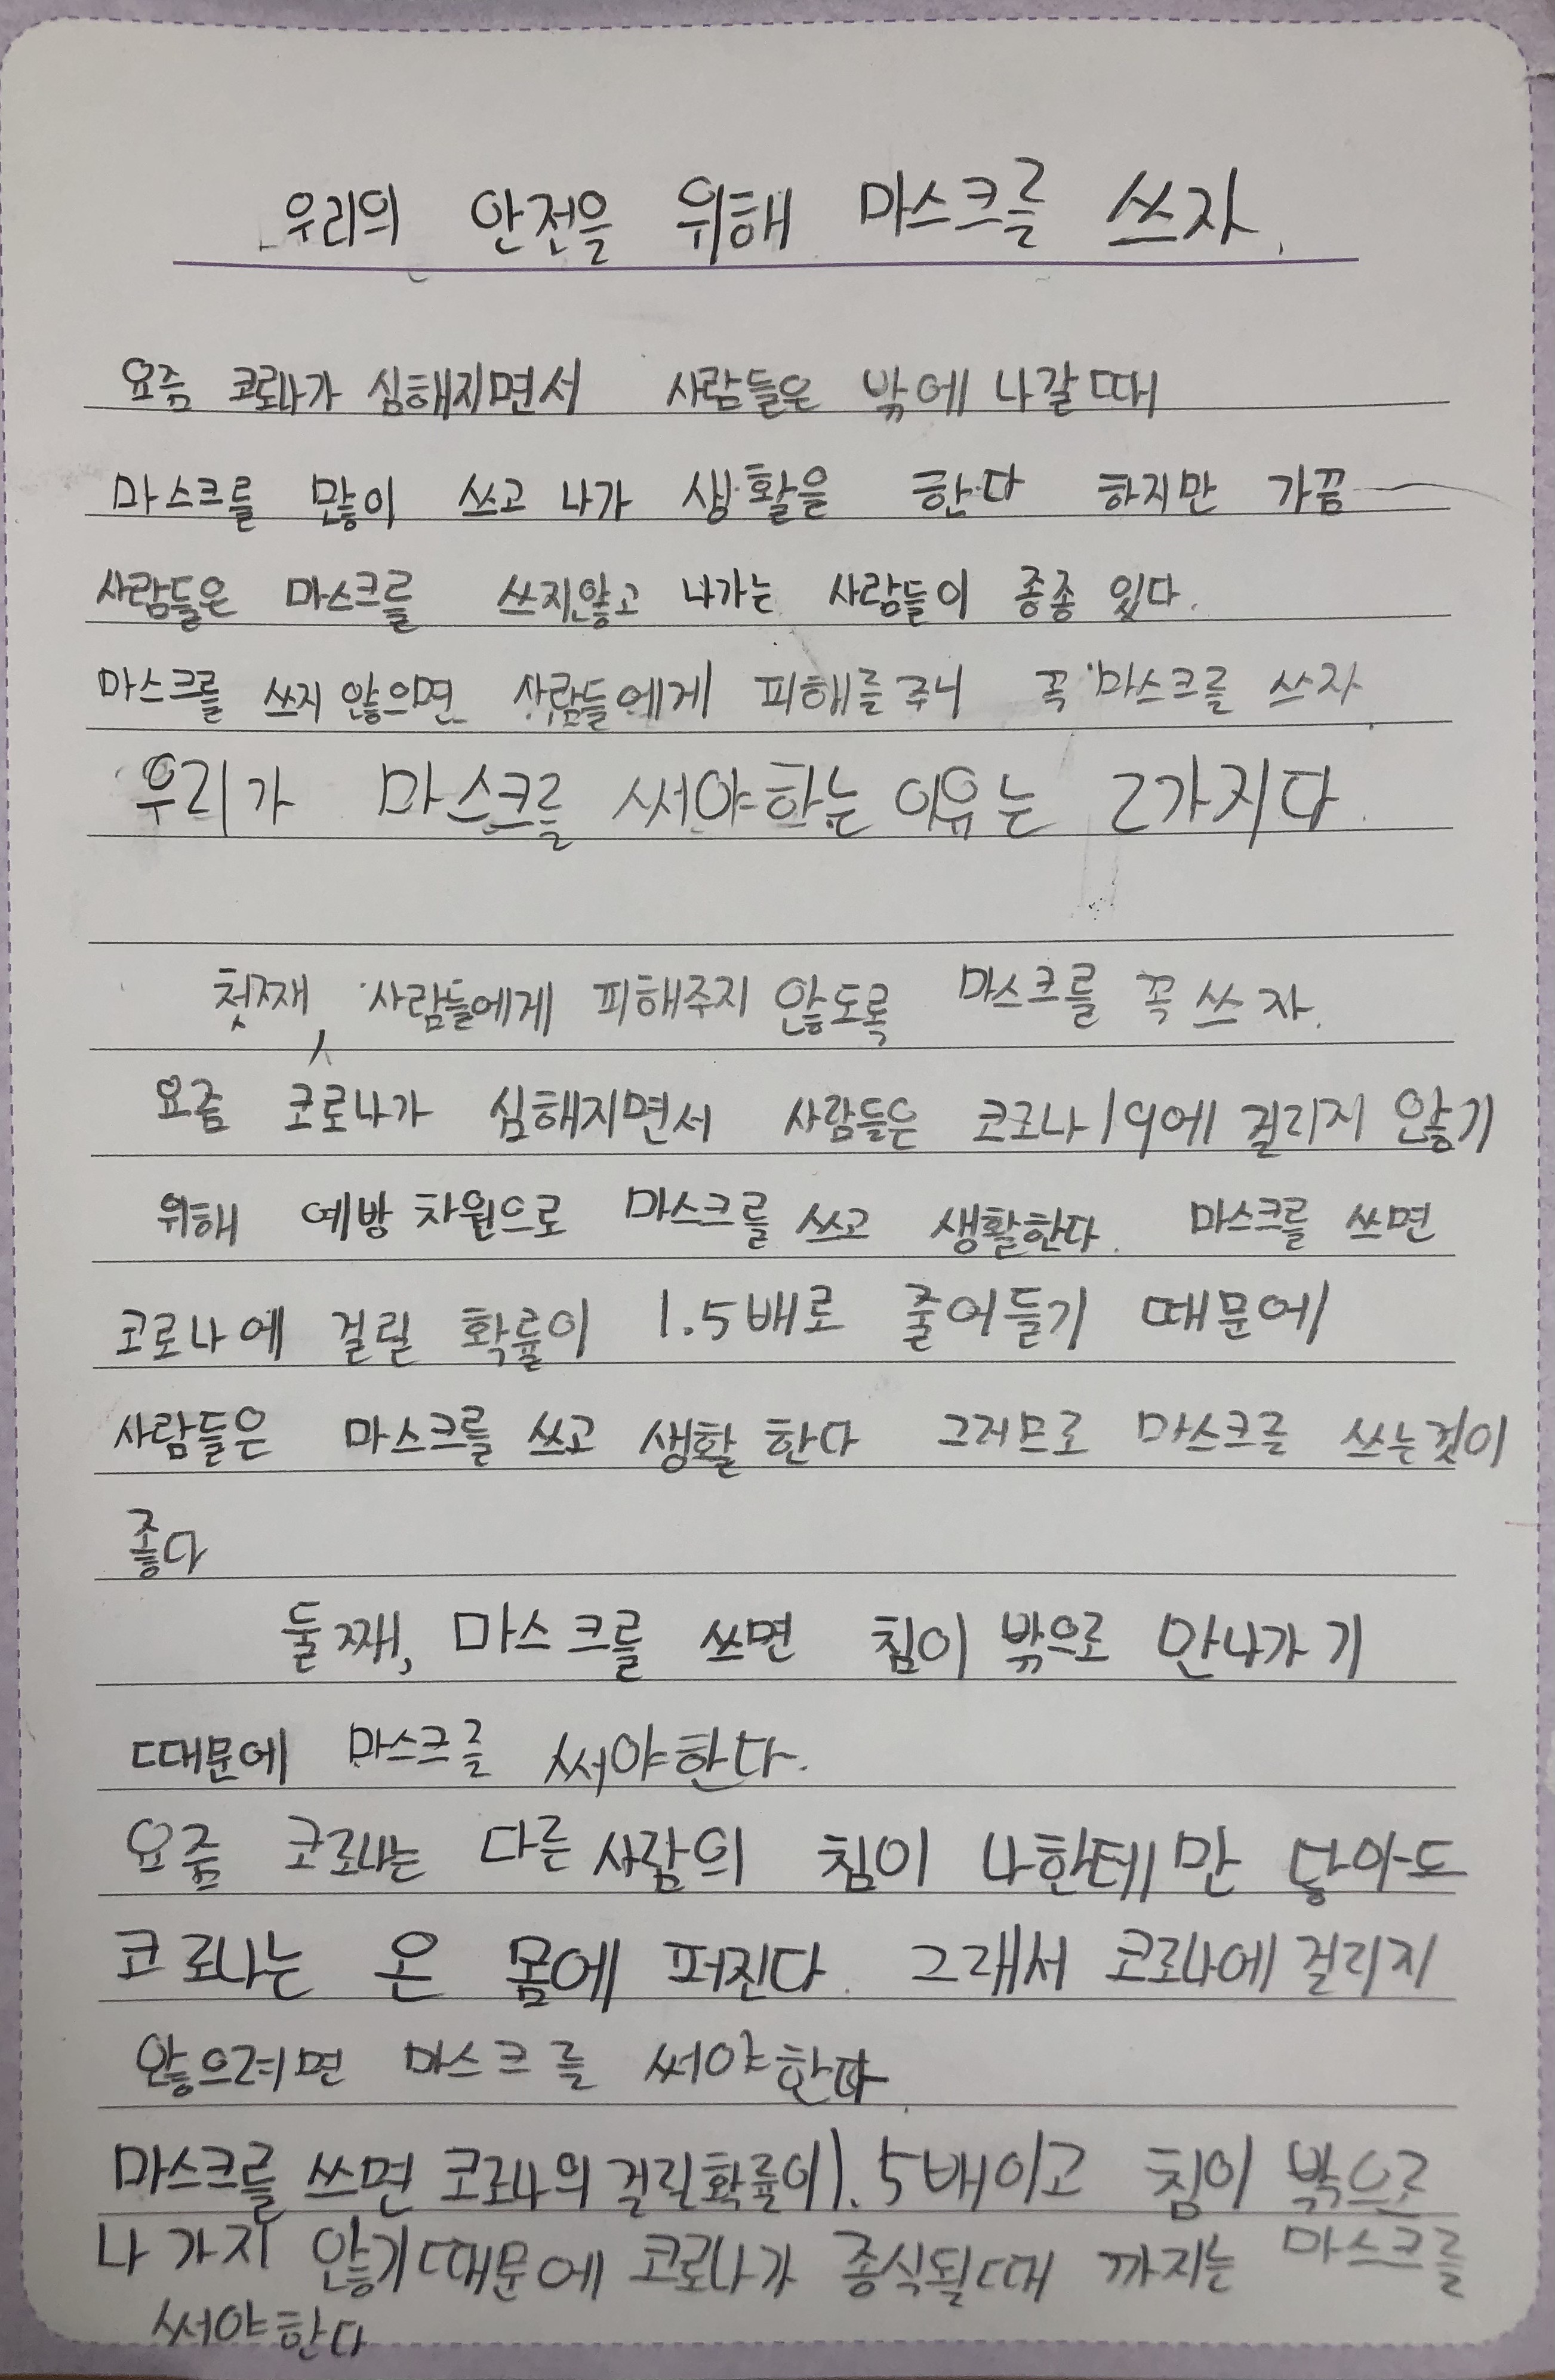 우리의 안전을 위해 마스크를 쓰자.
요즘 코로나가 심해지면서 사람들은 밖에 나갈때
마스크를 많이 쓰고 나가 생활을 한다 하지만 가끔
사람들은 마스크를 쓰지않고 나가는 사람들이 종종 있다.
마스크를 쓰지 않으면 사람들에게 피해를 주니 꼭 마스크를 쓰자.
우리가 마스크를 써야하는 이유는 2가지다.
첫째, 사람들에게 피해주지 않도록 마스크를 꼭 쓰자.
요즘 코로나가 심해지면서 사람들은 코로나19에 걸리지 않기
위해 예방 차원으로 마스크를 쓰고 생활한다. 마스크를 쓰면
코로나에 걸릴 확률이 1.5배로 줄어들기 때문에
사람들은 마스크를 쓰고 생활 한다 그러므로 마스크를 쓰는것이
좋다
둘째, 마스크를 쓰면 침이 밖으로 안나가기
때문에 마스크를 써야한다.
요즘 코로나는 다른 사람의 침이 나한테만 닿아도
코로나는 온 몸에 퍼진다. 그래서 코로나에 걸리지
않으려면 마스크를 써야한다.
마스크를 쓰면 코로나의 걸릴확률이 1.5배이고 침이 밖으로
나가지 않기때문에 코로나가 종식될때 까지는 마스크를
써야한다